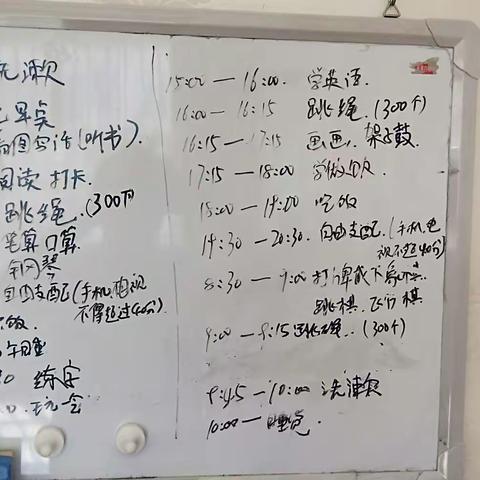 洗漱
早点
看图写话(听书).
阅读 打卡.
跳绳.(300个
笔算口算
钢琴
自由支配(手机,电视
不得超过40分)
午睡
练字
玩会
15:00 — 16:00. 学英语.
16:00 — 16:15 跳绳.(300个)
16:15 — 17:15 画画、架子鼓.
17:15 — 18:00 学做饭.
18:00 — 19:00 吃饭
19:30 — 20:30. 自由支配.(手机.电
视不过40分)
8:30 — 9:00 打牌或下象棋.
跳棋.飞行棋
9:00 — 9:15 跳绳.(300个)
9:45 — 10:00 洗漱
10:00 — 睡觉.